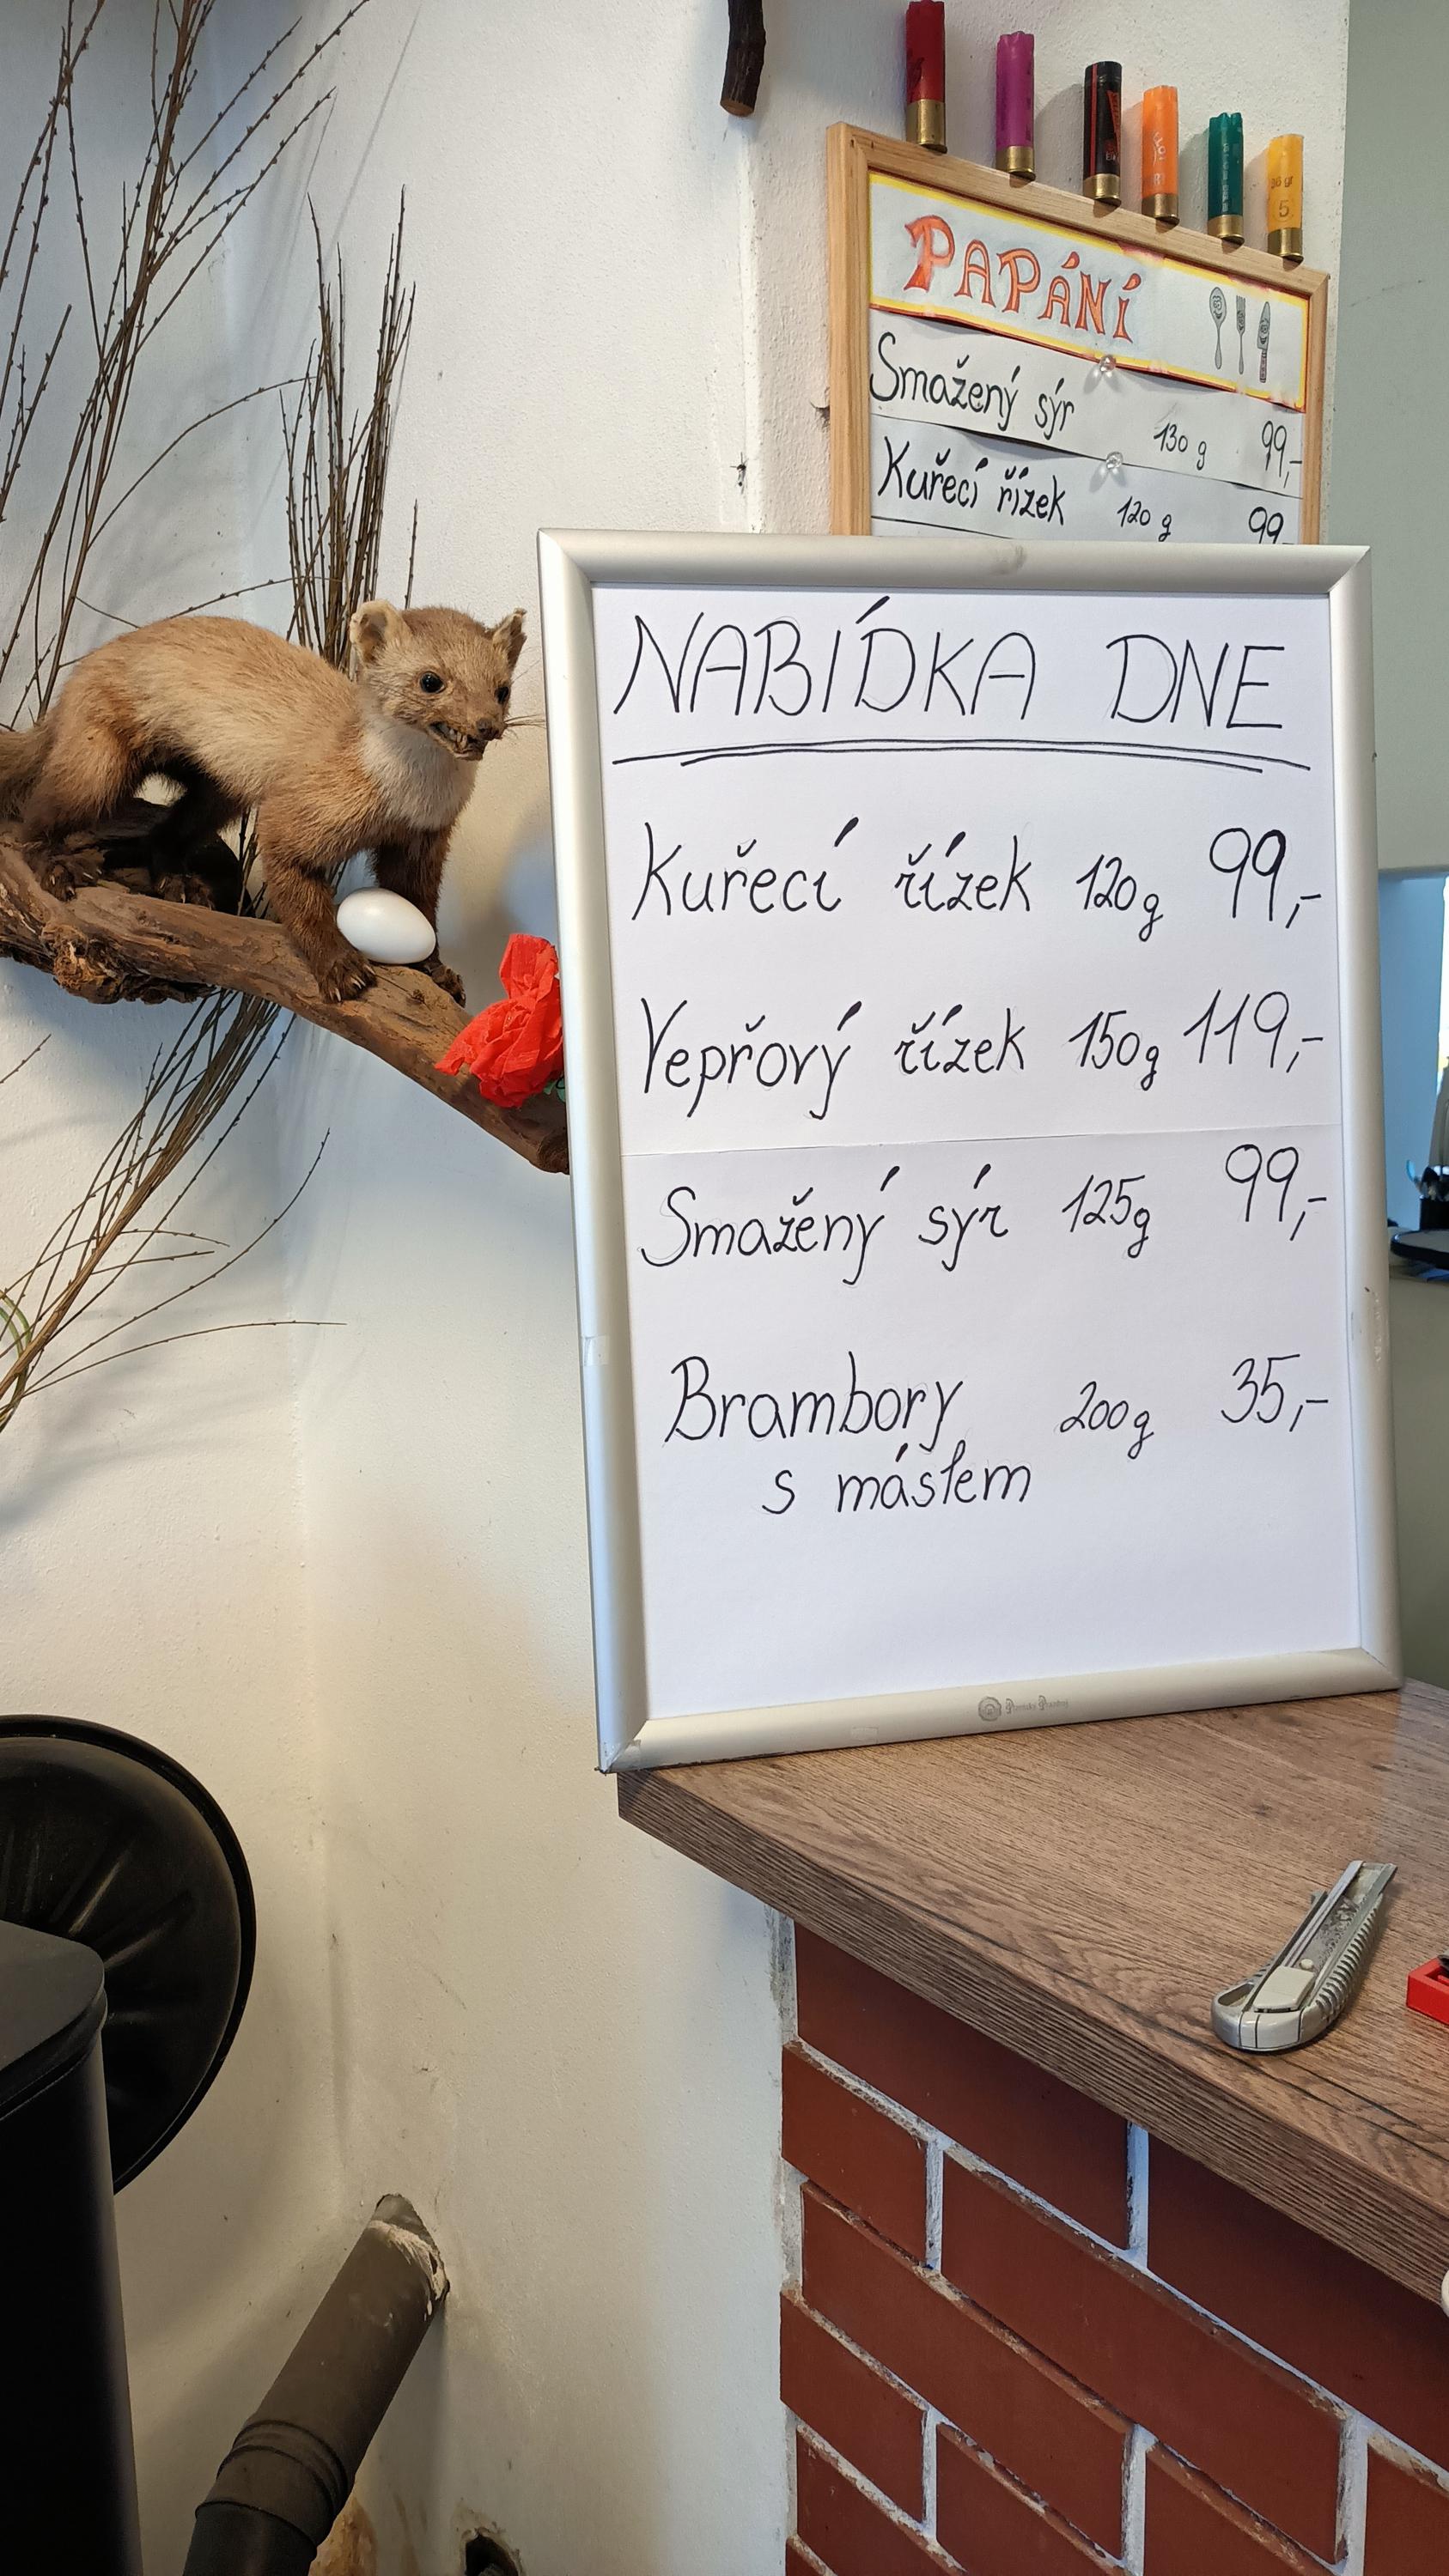 PAPÁNÍ
Smažený sýr 130 g 99,-
Kuřecí řízek 120 g 99,-
NABÍDKA DNE
Kuřecí řízek 120g 99,-
Vepřový řízek 150g 119,-
Smažený sýr 125g 99,-
Brambory 200g 35,-
s máslem
5